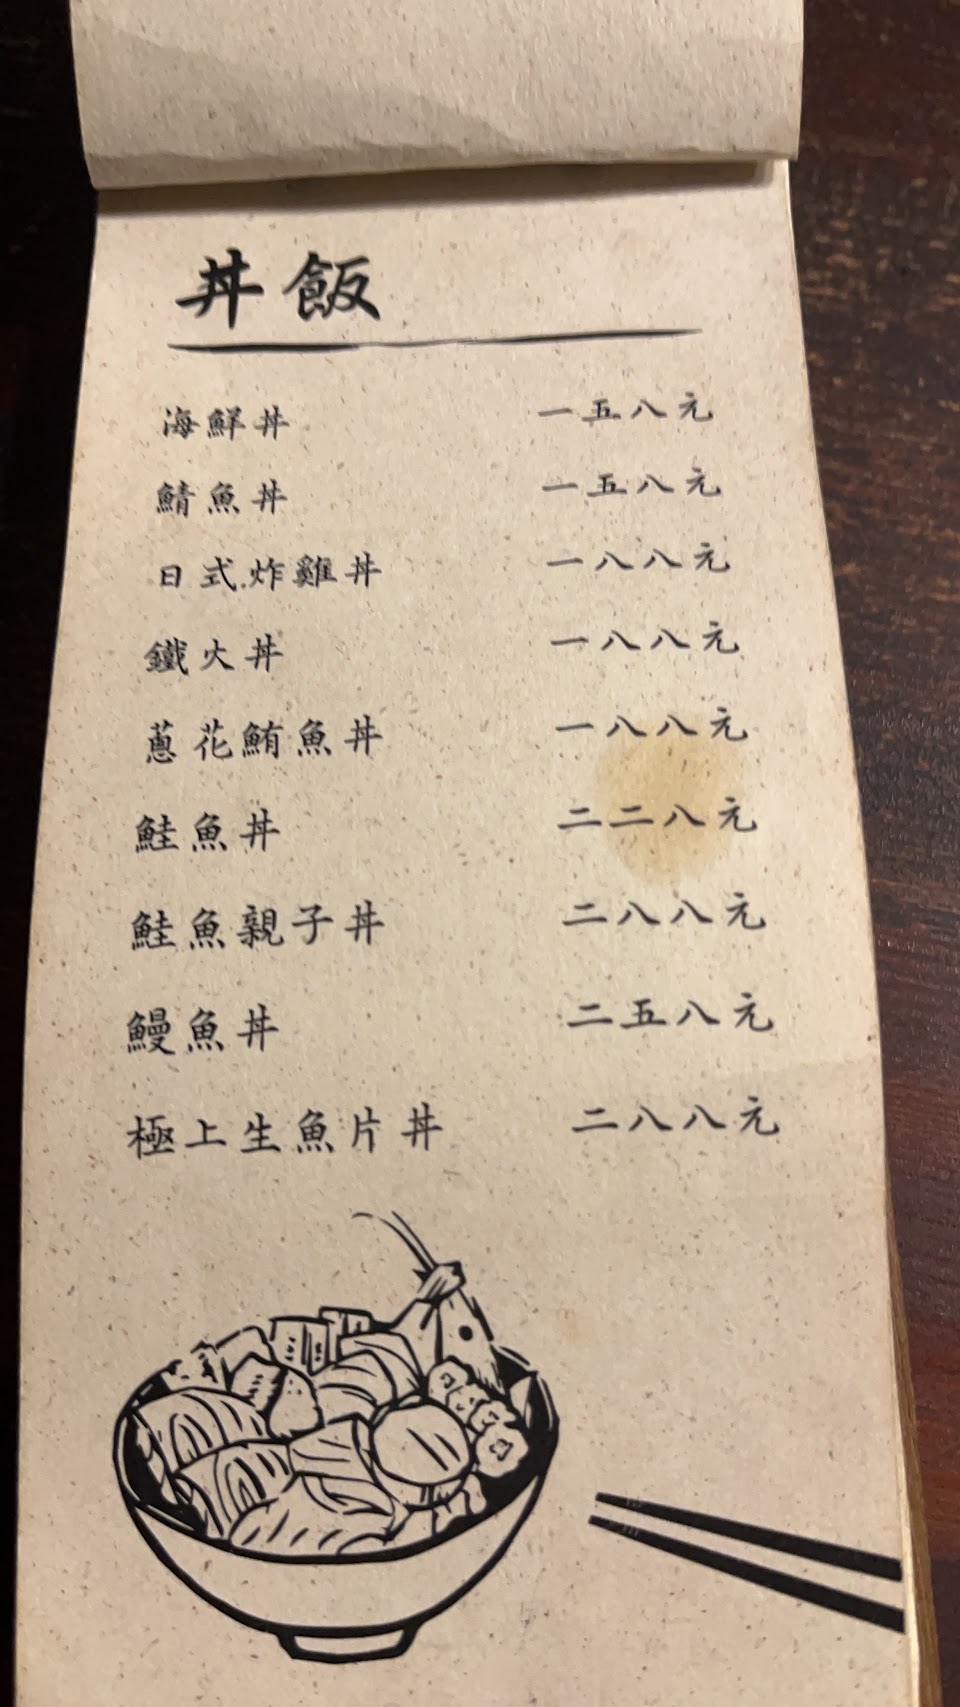 丼飯
海鮮丼 一五八元
鯖魚丼 一五八元
日式炸雞丼 一八八元
鐵火丼 一八八元
蔥花鮪魚丼 一八八元
鮭魚丼 二二八元
鮭魚親子丼 二八八元
鰻魚丼 二五八元
極上生魚片丼 二八八元